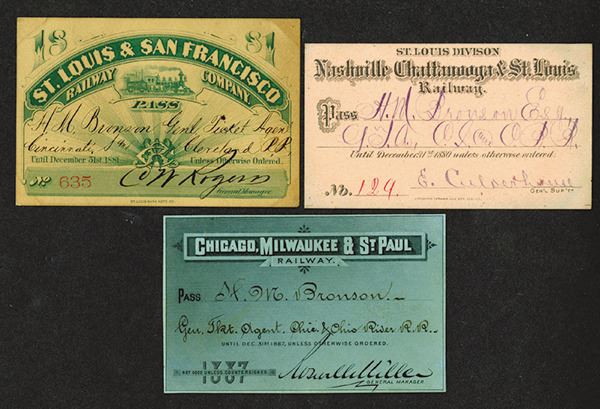 18 81
ST. LOUIS & SAN FRANCISCO
RAILWAY COMPANY.
PASS
H M Bronson Genl Ticket Agent
Cincinnati, & Cleveland R.R.
Until December 31st 1881. Unless Otherwise Ordered.
No 635 C W Rogers
General Manager
ST. LOUIS DIVISON
Nashville Chattanooga & St. Louis
Railway.
Pass H. M. Bronson Esq
G.T.A.
Until December 31st 1880 unless otherwise ordered.
No. 129 E. Culverhouse
Gen'l Sup't
CHICAGO, MILWAUKEE & ST PAUL
RAILWAY.
PASS H. M. Bronson.
Gen. Tkt. Agent. Ohio & Ohio River R.R.
UNTIL DEC. 31ST 1887, UNLESS OTHERWISE ORDERED.
1887
NOT GOOD UNLESS COUNTERSIGNED
Roswell Miller
GENERAL MANAGER